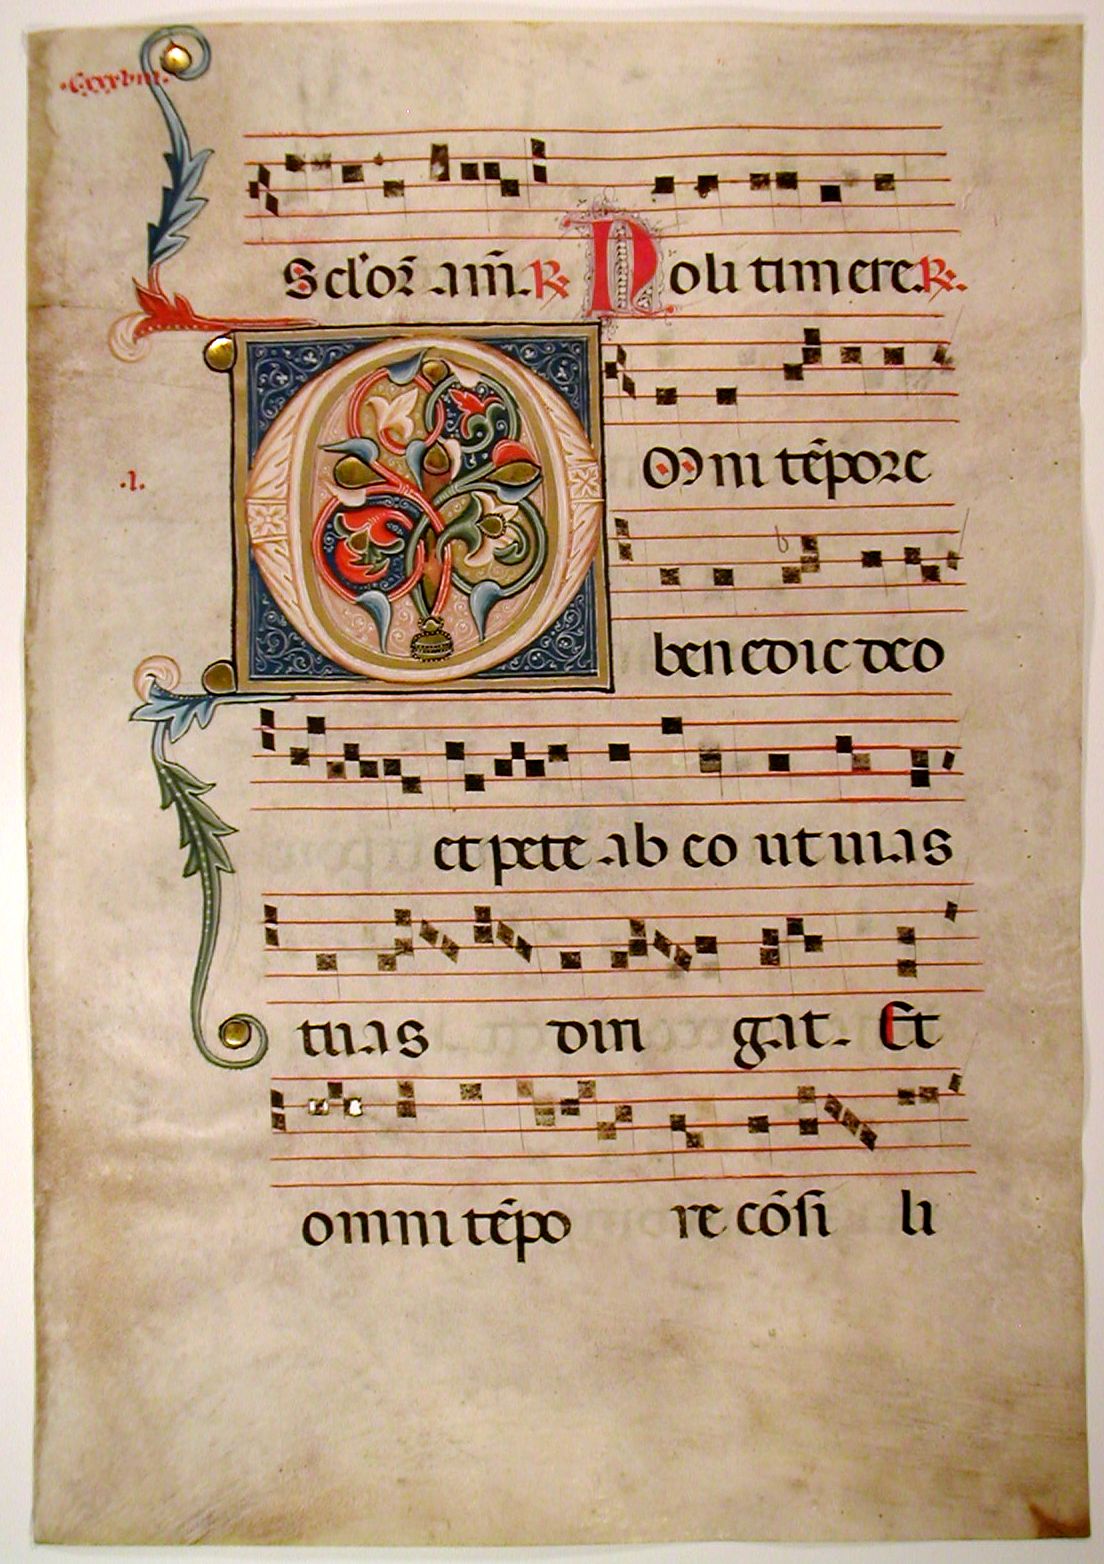 .Cxxxviii.
Scl'oꝝ am̄. ℟ Noli timere. ℟.
.1.
OMni tēpore
benedic deo
et pete ab eo ut uias
tuas dirigat. Et
omni tēpo re cōsi li